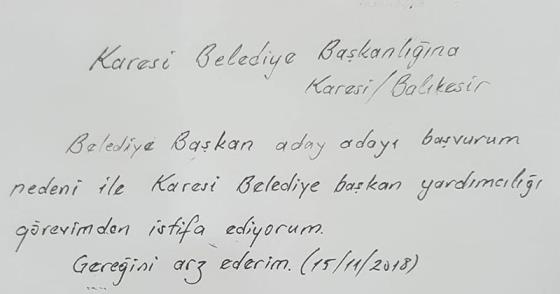 Karesi Belediye Başkanlığına
Karesi/Balıkesir
Belediye Başkan aday adayı başvurum
nedeni ile Karesi Belediye başkan yardımcılığı
görevimden istifa ediyorum.
Gereğini arz ederim. (15/11/2018)